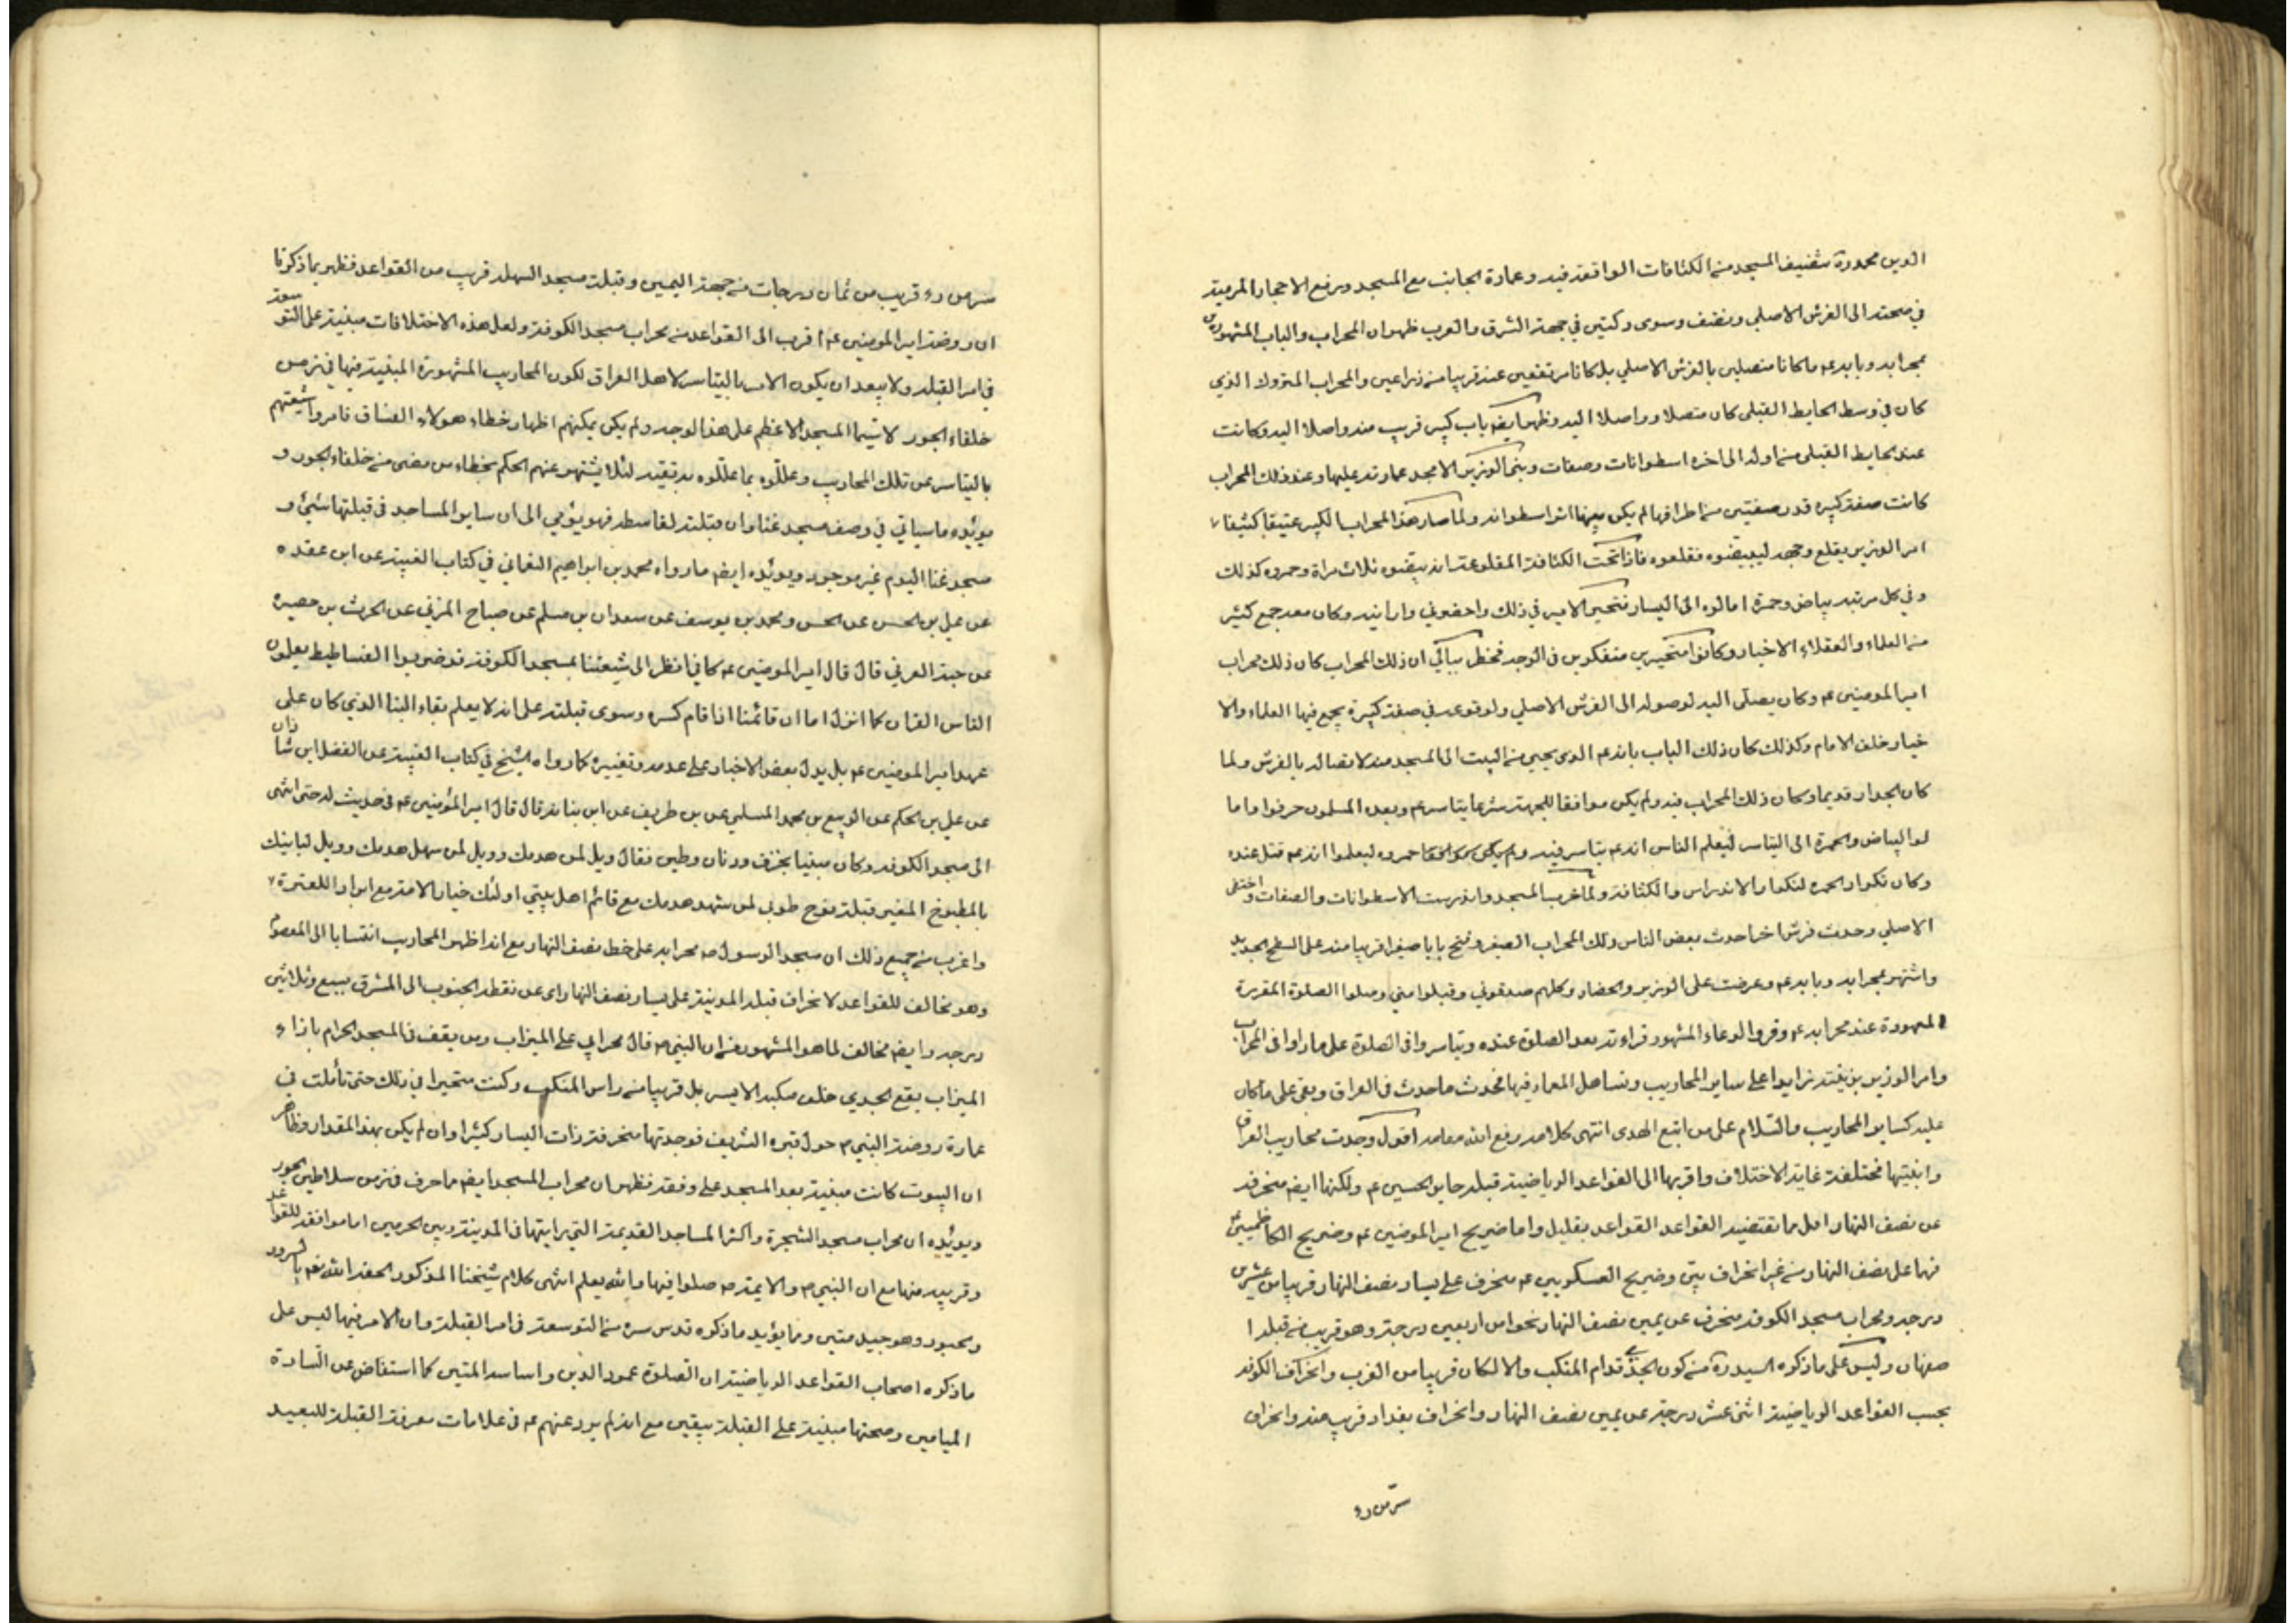 الدين محمد ره بتنظيف المسجد من الكثافات الواقعة فيه وعمارة الجانب مع المسجد ورفع الاحجار المرمية
في صحنه الى الفرش الاصلي ونظف وسوى دكتين في جهة الشرق والغرب ظهر ان المحراب والباب المشهورين
بمحرابه وبابه عم ما كانا متصلين بالفرش الاصلي بل كانا مرتفعين عنه قريبا من ذراعين والمحراب المتروك الذي
كان في وسط الحايط القبلي كان متصلا وواصلا اليه وظهر ايضه باب كبير قريب منه واصلا اليه وكانت
عند الحايط القبلي من اوله الى اخره اسطوانات وصفات وبنى الوزير الامجد عمارته عليها وعند ذلك المحراب
كانت صفة كبيره قدر صفتين من اطرافها لم يكن بينها اثر اسطوانه ولما صار هذا المحراب الكبير عتيقا كثيفا
امر الوزير بقلع وجهه ليبيضوه فقلعوه فاذا تحت الكثافة المقلوعة انه بيضوه ثلاث مراة وحمروه كذلك
وفي كل مرتبه بياض وحمرة امالوه الى اليسار فتحير الامير في ذلك واحضروني وارانيه وكان معه جمع كثير
من العلماء والعقلاء الاخيار وكانوا متحيرين متفكرين في الوجه فخطر ببالي ان ذلك المحراب كان ذلك محراب
امير المومنين عم وكان يصلي اليه لوصوله الى الفرش الاصلي ولوقوعه في صفة كبيرة يجمع فيها العلماء والا
خيار خلف الامام وكذلك كان ذلك الباب بابه عم الذي يجيء من البيت الى المسجد منه لاتصاله بالفرش ولما
كان الجدار قديما وكان ذلك المحراب فيه ولم يكن موافقا للجهة شرعا يتاسر عم وبعده المسلمون حرفوا واما
لوا البياض والحمرة الى التياسر ليعلم الناس انه عم يتاسر فيه وحمروه ليعلموا انه عم قتل عنده
وكان تكرار الحمره لتكرار الاندراس والكثافة ولما خرب المسجد واندرست الاسطوانات والصفات واختفى
الاصلي وحدث فرش اخر احدث بعض الناس ذلك المحراب الصغير وفتح بابا صغيرا قريبا منه على السطح الجديد
واشتهر بمحرابه وبابه عم وعرضت على الوزير والحضار وكلهم صدقوني وقبلوا مني وصلوا الصلوة المقررة
المعهودة عند محرابه عم وقرؤا الدعاء المشهور قراءته بعد الصلوة عنده وتياسروا في الصلوة على ما راوا في المحراب
وامر الوزير بزينته زايدا على ساير المحاريب وتساهل المعمار فيها فحدث ما حدث في العراق وبقي على ما كان
عليه كساير المحاريب والسلام على من اتبع الهدى انتهى كلامه رفع الله مقامه اقول وجدت محاريب العراق
وابنيتها مختلفة غاية الاختلاف واقربها الى القواعد الرياضية قبلة حاير الحسين عم ولكنها ايضه منحرفه
عن نصف النهار اقل مما تقتضيه القواعد القواعد بقليل واما ضريح امير المومنين عم وضريح الكاظميين عم
فهما على نصف النهار من غير انحراف بين وضريح العسكريين عم منحرف على يسار نصف النهار قريبا من عشرين
درجه ومحراب مسجد الكوفة منحرف عن يمين نصف النهار نحوا من اربعين درجة وهو قريب من قبلة ا
صفهان وليس على ما ذكره السيد ره من كون الجدي قدام المنكب والا لكان قريبا من الغرب وانحراف الكوفه
بحسب القواعد الرياضية اثنى عشر درجة عن يمين نصف النهار وانحراف بغداد قريب منه وانحراف
سر من رء
سر من رء قريب من ثمان درجات من جهة اليمين وقبلة مسجد السهله قريب من القواعد فظهر بما ذكرنا
ان روضة امير المومنين عم اقرب الى القواعد من محراب مسجد الكوفة ولعل هذه الاختلافات مبنية على التوسعة
في امر القبله ولا يبعد ان يكون الامر بالتياسر لاهل العراق لكون المحاريب المشهورة المبنية فيها في زمن
خلفاء الجور لا سيما المسجد الاعظم على هذا الوجه ولم يكن يمكنهم اظهار خطاء هولاء الفساق فامروا شيعتهم
بالتياسر عن تلك المحاريب وعللوه بما عللوه به تقية لئلا يشتهر عنهم الحكم بخطاء من مضى من خلفاء الجور و
يؤيده ما سياتي في وصف مسجد غنا وان قبلته لقاسطه فهو يؤمي الى ان ساير المساجد في قبلتها شيئ و
مسجد غنا اليوم غير موجود ويؤيده ايضه ما رواه محمد بن ابراهيم النعماني في كتاب الغيبة عن ابن عقده
عن علي بن الحسن عن الحسن ومحمد بن يوسف عن سعدان بن مسلم عن صباح المزني عن الحرث بن حصيره
عن حبة العرني قال قال امير المومنين عم كاني انظر الى شيعتنا بمسجد الكوفة قد ضربوا الفساطيط يعلمون
الناس القران كما انزل اما ان قائمنا اذا قام كسره وسوى قبلته على انه لا يعلم بقاء البنا الذي كان على
عهد امير المومنين عم بل يدل بعض الاخبار على هدمه وتغييره كما رواه الشيخ في كتاب الغيبة عن الفضل ابن شاذان
عن علي بن الحكم عن الربيع بن محمد المسلي عن بن طريف عن ابن بناته قال قال امير المؤمنين عم في حديث له حتى انتهى
الى مسجد الكوفه وكان مبنيا بخزف ودنان وطين فقال ويل لمن هدمك وويل لمن سهل هدمك وويل لبانيك
بالمطبوخ المغير قبلة نوح طوبى لمن شهد هدمك مع قائم اهل بيتي اولئك خيار الامة مع ابرار العترة
واغرب من جميع ذلك ان مسجد الرسول صه محرابه على خط نصف النهار مع انه اظهر المحاريب انتسابا الى المعصوم
وهو مخالف للقواعد لانحراف قبلة المدينة على يسار نصف النهار اى عن نقطة الجنوب الى المشرق بسبع وثلاثين
درجه وايضه مخالف لما هو المشهور من ان النبي صه قال محرابي على الميزاب ومن يقف في المسجد الحرام بازاء
الميزاب يقع الجدي خلف منكبه الايسر بل قريبا من راس المنكب وكنت متحيرا في ذلك حتى تأملت في
عمارة روضة النبي م حول قبره الشريف فوجدتها منحرفة ذات اليسار كثيرا وان لم يكن بهذا المقدار وظاهر
ان البيوت كانت مبنية بعد المسجد على وفقه فظهر ان محراب المسجد ايضه مما حرف في زمن سلاطين الجور
ويؤيده ان محراب مسجد الشجرة واكثر المساجد القديمة التي رايتها في المدينة وبين الحرمين اما موافقه للقواعد
وقريبه منها مع ان النبي م والايمة صه صلوا فيها والله يعلم انتهى كلام شيخنا المذكور احقه الله بسرور
وحبور وهو جيد متين ومما يؤيد ما ذكره قدس سره من التوسعة في امر القبلة وان الامر فيها ليس على
ما ذكره اصحاب القواعد الرياضية ان الصلوة عمود الدين واساسه المتين كما استفاض عن السادة
الميامين وصحتها مبنية على القبلة بيقين مع انه لم يرد عنهم عم في علامات معرفة القبلة للبعيد